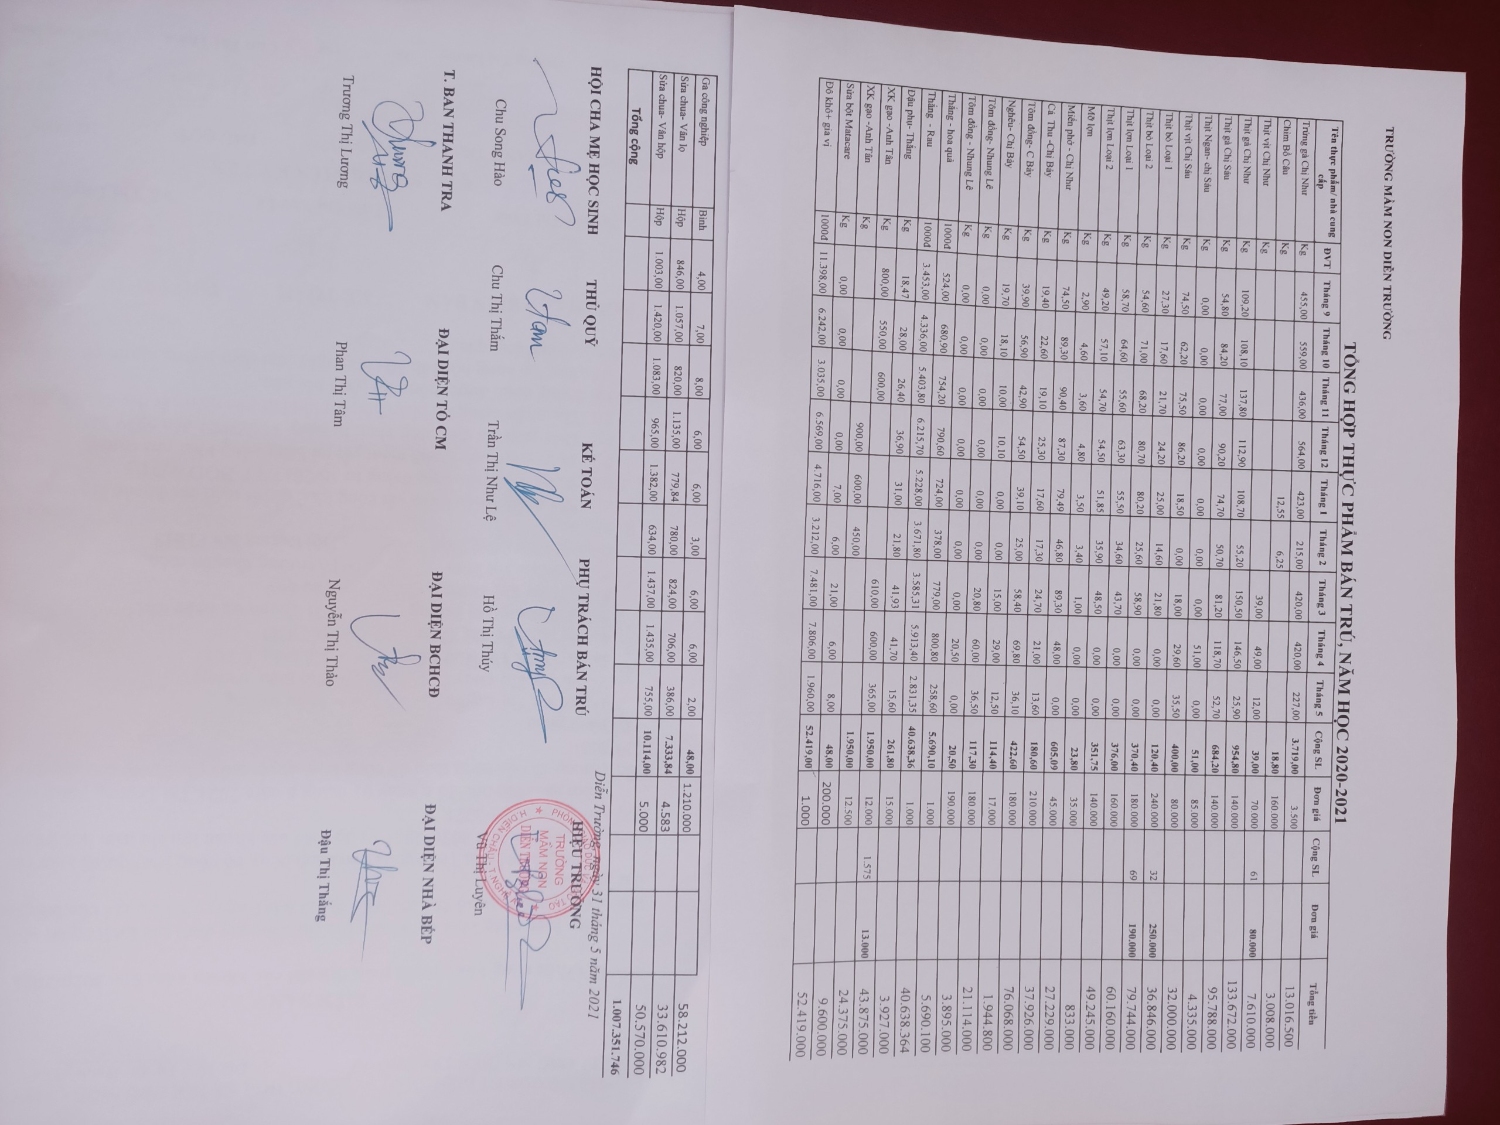 TRƯỜNG MẦM NON DIỄN TRƯỜNG
TỔNG HỢP THỰC PHẨM BÁN TRÚ, NĂM HỌC 2020-2021
Tên thực phẩm/ nhà cung cấp ĐVT Tháng 9 Tháng 10 Tháng 11 Tháng 12 Tháng 1 Tháng 2 Tháng 3 Tháng 4 Tháng 5 Cộng SL Đơn giá Cộng SL Đơn giá Tổng tiền
Trứng gà Chị Như Kg 455,00 559,00 436,00 564,00 423,00 215,00 420,00 420,00 227,00 3.719,00 3.500 13.016.500
Chim Bồ Câu Kg 12,55 6,25 18,80 160.000 3.008.000
Thịt vịt Chị Như Kg 39,00 49,00 12,00 39,00 70.000 61 80.000 7.610.000
Thịt gà Chị Như Kg 109,20 108,10 137,80 112,90 108,70 55,20 150,50 146,50 25,90 954,80 140.000 133.672.000
Thịt gà Chị Sáu Kg 54,80 84,20 77,00 90,20 74,70 50,70 81,20 118,70 52,70 684,20 140.000 95.788.000
Thịt Ngan- chị Sáu Kg 0,00 0,00 0,00 0,00 0,00 0,00 0,00 51,00 0,00 51,00 85.000 4.335.000
Thịt vịt Chị Sáu Kg 74,50 62,20 75,50 86,20 18,50 0,00 18,00 29,60 35,50 400,00 80.000 32.000.000
Thịt bò Loại 1 Kg 27,30 17,60 21,70 24,20 25,00 14,60 21,80 0,00 0,00 120,40 240.000 32 250.000 36.846.000
Thịt bò Loại 2 Kg 54,60 71,00 68,20 80,70 80,20 25,60 58,90 0,00 0,00 370,40 180.000 69 190.000 79.744.000
Thịt lợn Loại 1 Kg 58,70 64,60 55,60 63,30 55,50 34,60 43,70 0,00 0,00 376,00 160.000 60.160.000
Thịt lợn Loại 2 Kg 49,20 57,10 54,70 54,50 51,85 35,90 48,50 0,00 0,00 351,75 140.000 49.245.000
Mỡ lợn Kg 2,90 4,60 3,60 4,80 3,50 3,40 1,00 0,00 0,00 23,80 35.000 833.000
Miến phở - Chị Như Kg 74,50 89,30 90,40 87,30 79,49 46,80 89,30 48,00 0,00 605,09 45.000 27.229.000
Cá Thu -Chị Bảy Kg 19,40 22,60 19,10 25,30 17,60 17,30 24,70 21,00 13,60 180,60 210.000 37.926.000
Tôm đồng- C Bảy Kg 39,90 56,90 42,90 54,50 39,10 25,00 58,40 69,80 36,10 422,60 180.000 76.068.000
Nghêu- Chị Bảy Kg 19,70 18,10 10,00 10,10 0,00 0,00 15,00 29,00 12,50 114,40 17.000 1.944.800
Tôm đồng- Nhung Lê Kg 0,00 0,00 0,00 0,00 0,00 0,00 20,80 60,00 36,50 117,30 180.000 21.114.000
Tôm đồng - Nhung Lê Kg 0,00 0,00 0,00 0,00 0,00 0,00 0,00 20,50 0,00 20,50 190.000 3.895.000
Thắng - hoa quả 1000đ 524,00 680,90 754,20 790,60 724,00 378,00 779,00 800,80 258,60 5.690,10 1.000 5.690.100
Thắng - Rau 1000đ 3.453,00 4.336,00 5.403,80 6.215,70 5.228,00 3.671,80 3.585,31 5.913,40 2.831,35 40.638,36 1.000 40.638.364
Đậu phụ- Thắng Kg 18,47 28,00 26,40 36,90 31,00 21,80 41,93 41,70 15,60 261,80 15.000 3.927.000
XK gạo -Anh Tân Kg 800,00 550,00 600,00 610,00 600,00 365,00 1.950,00 12.000 1.575 13.000 43.875.000
XK gạo -Anh Tân Kg 900,00 600,00 450,00 1.950,00 12.500 24.375.000
Sữa bột Matacare Kg 0,00 0,00 0,00 0,00 7,00 6,00 21,00 6,00 8,00 48,00 200.000 9.600.000
Đồ khô+ gia vị 1000đ 11.398,00 6.242,00 3.035,00 6.569,00 4.716,00 3.212,00 7.481,00 7.806,00 1.960,00 52.419,00 1.000 52.419.000
Ga công nghiệp Bình 4,00 7,00 8,00 6,00 6,00 3,00 6,00 6,00 2,00 48,00 1.210.000 58.212.000
Sữa chua- Vân lọ Hộp 846,00 1.057,00 820,00 1.135,00 779,84 780,00 824,00 706,00 386,00 7.333,84 4.583 33.610.982
Sữa chua- Vân hộp Hộp 1.003,00 1.420,00 1.083,00 965,00 1.382,00 634,00 1.437,00 1.435,00 755,00 10.114,00 5.000 50.570.000
Tổng cộng 1.007.351.746
Diễn Trường, ngày 31 tháng 5 năm 2021
HỘI CHA MẸ HỌC SINH THỦ QUỸ KẾ TOÁN PHỤ TRÁCH BÁN TRÚ HIỆU TRƯỞNG
TRƯỜNG
MẦM NON
DIỄN TRƯỜNG
Chu Song Hào Chu Thị Thắm Trần Thị Như Lệ Hồ Thị Thúy Vũ Thị Luyên
T. BAN THANH TRA ĐẠI DIỆN TỔ CM ĐẠI DIỆN BCHCĐ ĐẠI DIỆN NHÀ BẾP
Trương Thị Lương Phan Thị Tâm Nguyễn Thị Thảo Đậu Thị Thắng